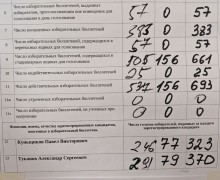 бюллетеней, выданных
избирателям, проголосовавшим вне помещения для
голосования в день голосования 57 0 57
7 Число погашенных избирательных бюллетеней 0 383
8 Число избирательных бюллетеней, содержащихся в
переносных ящиках для голосования 57 0 57
9 Число избирательных бюллетеней, содержащихся в
стационарных ящиках для голосования 505 156 661
10 Число недействительных избирательных бюллетеней 25 0 25
11 Число действительных избирательных бюллетеней 156 693
11а Число утраченных избирательных бюллетеней 0 0 0
11б Число избирательных бюллетеней, не учтенных при
получении 0 0 0
Фамилии, имена, отчества зарегистрированных кандидатов,
Число голосов избирателей, поданных за каждого
зарегистрированного кандидата
12 Кузнецов Павел Викторович 246 77 323
13 Тукачев Александр Сергеевич 291 79 370